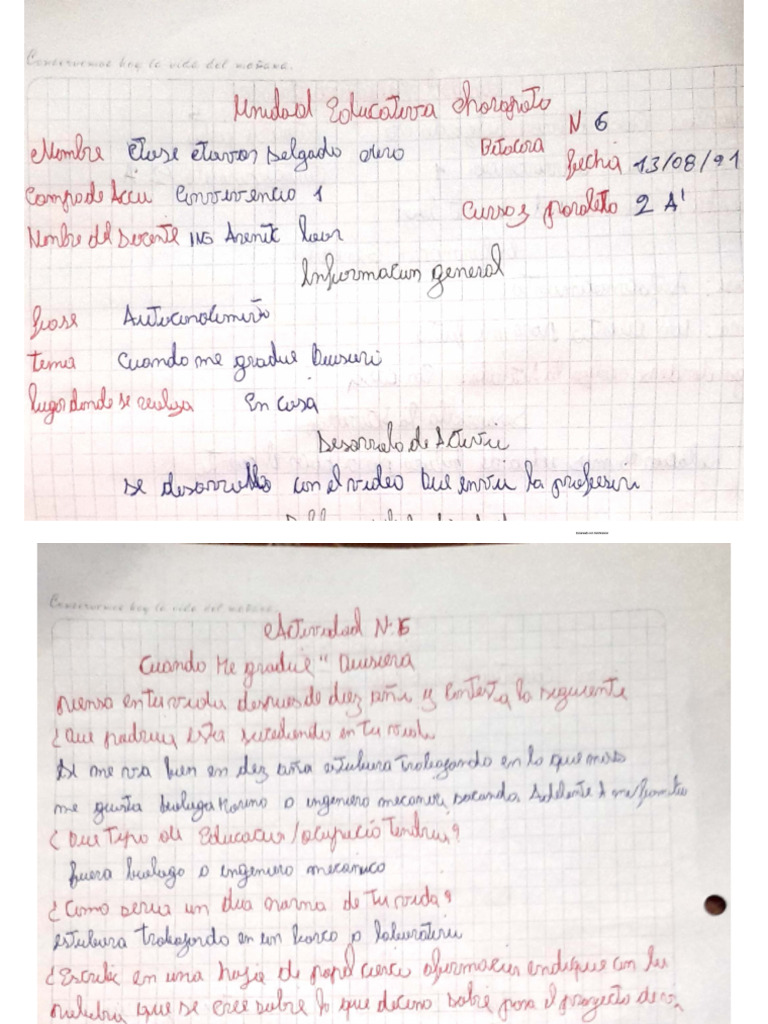 Conservemos hoy la vida del mañana.
Unidad Educativa
Bitacora N 6
Nombre Delgado
fecha 13/08/21
Campo de Accu Convivencio 1
Curso y paralelo 2 A
Nombre del Docente ING
Informacion general
fase Autoconocimiento
tema Cuando me gradue Quisiera
lugar donde se realiza En casa
Desarrollo de
se desarrollo con el video que envio la profesora
Conservemos hoy la vida del mañana.
Actividad N: 6
Cuando Me gradue" Quisiera
piensa en tu vida despues de diez año y Contesta lo siguiente
¿Que podria esta sucediendo en tu vida
Si me va bien en diez año estubiera trabajando en lo que mas
me gusta biologo Marino o ingeniero mecanico sacando Adelante A mi familia
¿Que Tipo de Educacion/ocupacio Tendrias?
fuera biologo o ingeniero mecanico
¿Como seria un dia norma de Tu vida?
estubiera trabajando en un barco o laboratorio
¿Escribe en una hoja de papel cinco afirmacion
palabra que se cree sobre lo que sobre para el proyecto de